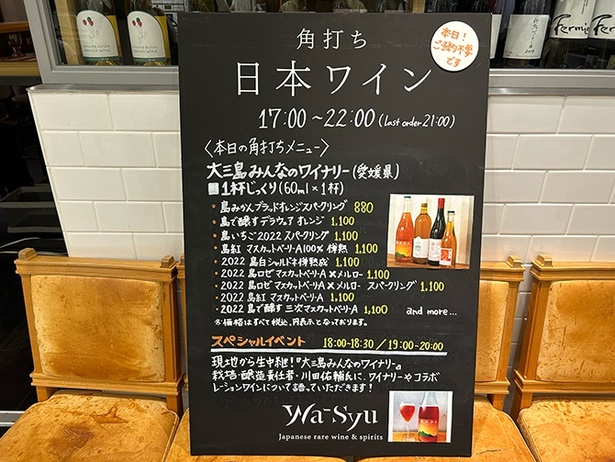 角打ち
本日!
ご予約不要
です
日本ワイン
17:00~22:00 (Last order 21:00)
<本日の角打ちメニュー>
大三島みんなのワイナリー(愛媛県)
1杯じっくり(60ml×1杯)
・島みかんブラッドオレンジスパークリング 880
・島で醸すデラウェア オレンジ 1,100
・島いちご2022 スパークリング 1,100
・島紅 マスカットベーリーA100% 樽熟 1,100
・2022 島白シャルドネ樽熟成 1,100
・2022 島ロゼマスカットベーリーA×メルロー 1,100
・2022 島ロゼマスカットベーリーA×メルロー スパークリング 1,100
・2022 島紅 マスカットベーリーA 1,100
・2022 島で醸す 三次マスカットベーリーA 1,100
and more...
※価格はすべて税込、円表示となっております。
スペシャルイベント 18:00-18:30 / 19:00~20:00
現地から生中継!『大三島みんなのワイナリー』
栽培・醸造責任者・川田佑輔氏に、ワイナリーやコラボ
レーションワインについて語っていただきます!
Wa-Syu
Japanese rare wine & spirits